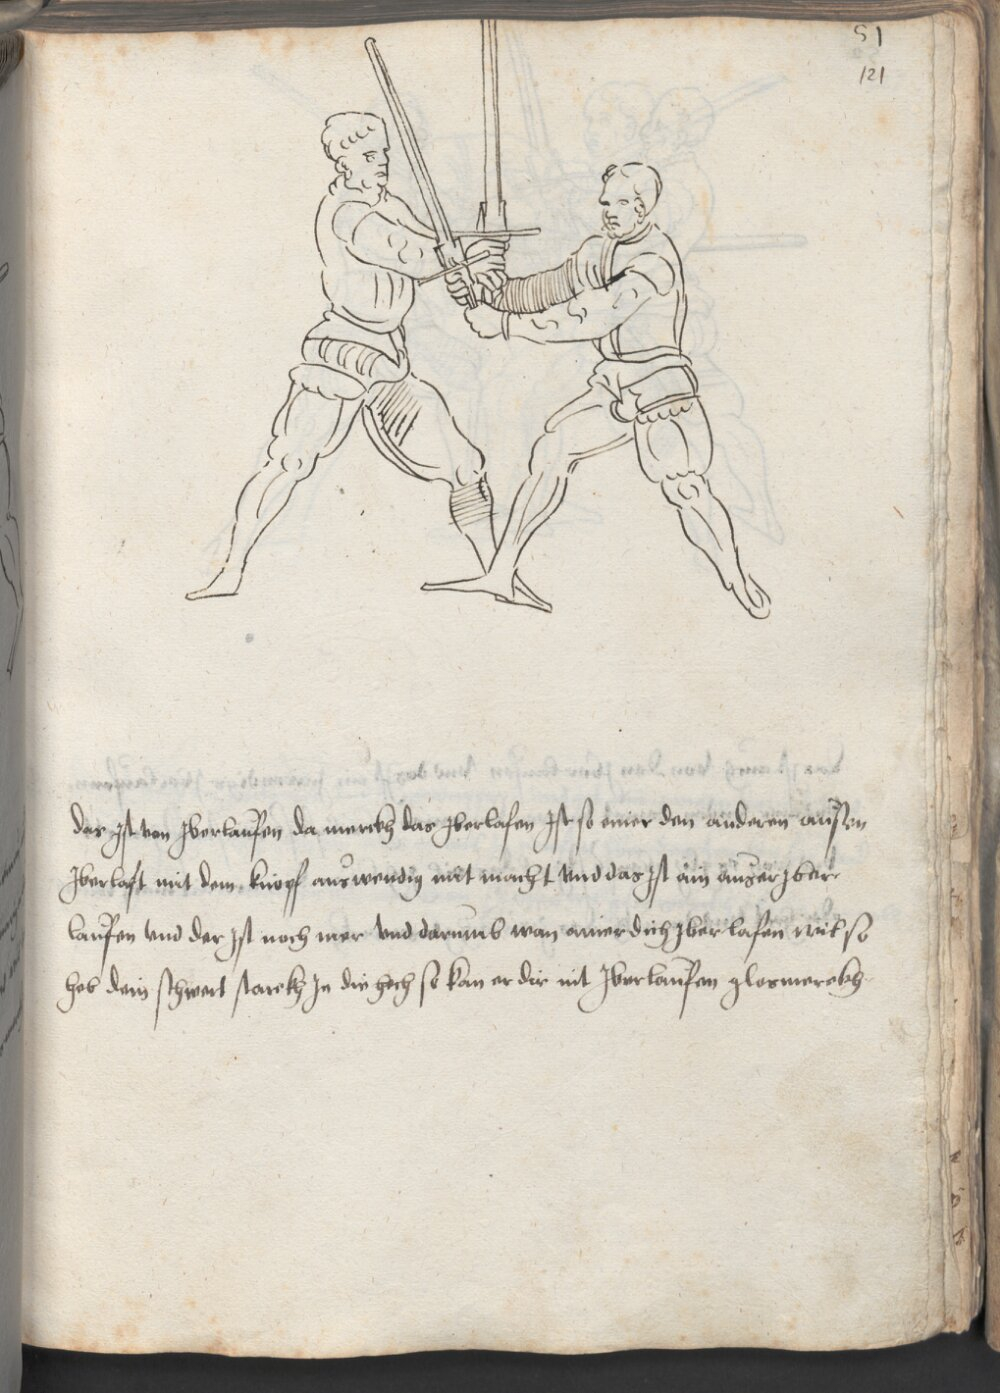 51
121
das ist von Jberlauffen da merckh das Jberlafen Jst so einer den anderen aussen
Jberlaft mit dem knopf auswendig mit macht vnd das Jst ain auser Jber
lauffen vnd der Jst noch mer vnd darumb wan ainer dich Jber lafen wil so
heb dein schwert starckh Jn die hech so kan er dir nit Jberlauffen glosmerckh